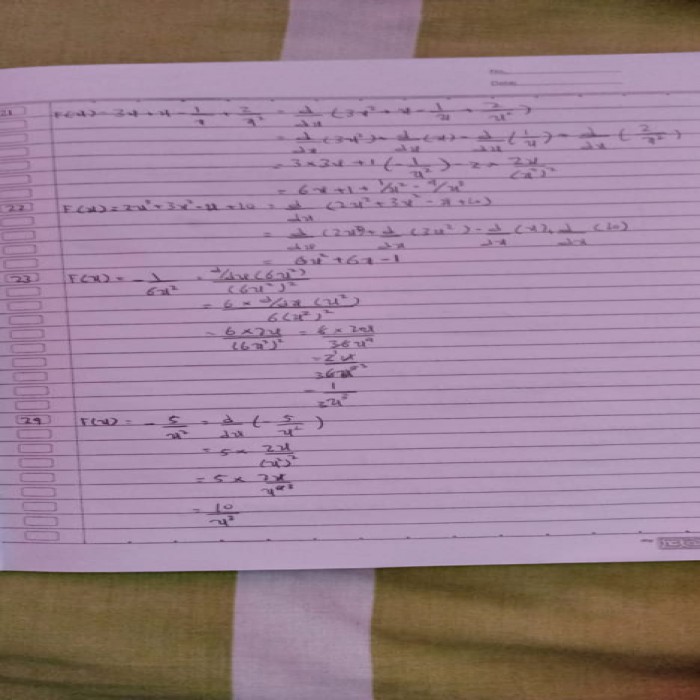 No.
Date:
21 F(x) = 3x + x - 1/x + 2/x² = d/dx (3x² + x - 1/x + 2/x²)
= d/dx (3x²) + d/dx (x) - d/dx (1/x) + d/dx (2/x²)
= 3 × 2x + 1 (-1/x²) - 2 × 2x/(x²)²
= 6x + 1 + 1/x² - 4/x³
22 F(x) = 2x³ + 3x² - x + 10 = d/dx (2x³ + 3x² - x + 10)
= d/dx (2x³) + d/dx (3x²) - d/dx (x) + d/dx (10)
= 6x² + 6x - 1
23 F(x) = - 1/6x² = d/dx (6x²)/(6x²)²
= 6 × d/dx (x²)/6(x²)²
= 6 × 2x/(6x²)² = 6 × 2x/36x⁴
= 2x
= 1
24 F(x) = - 5/x² = d/dx (- 5/x²)
= 5 × 2x/(x²)²
= 5 × 2x
= 10/x³